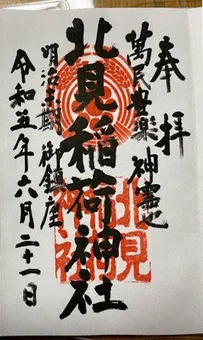 奉拝
萬民安楽 神恵
北見稲荷神社
明治 期 御鎮座
令和五年六月二十一日
北見稲荷神社